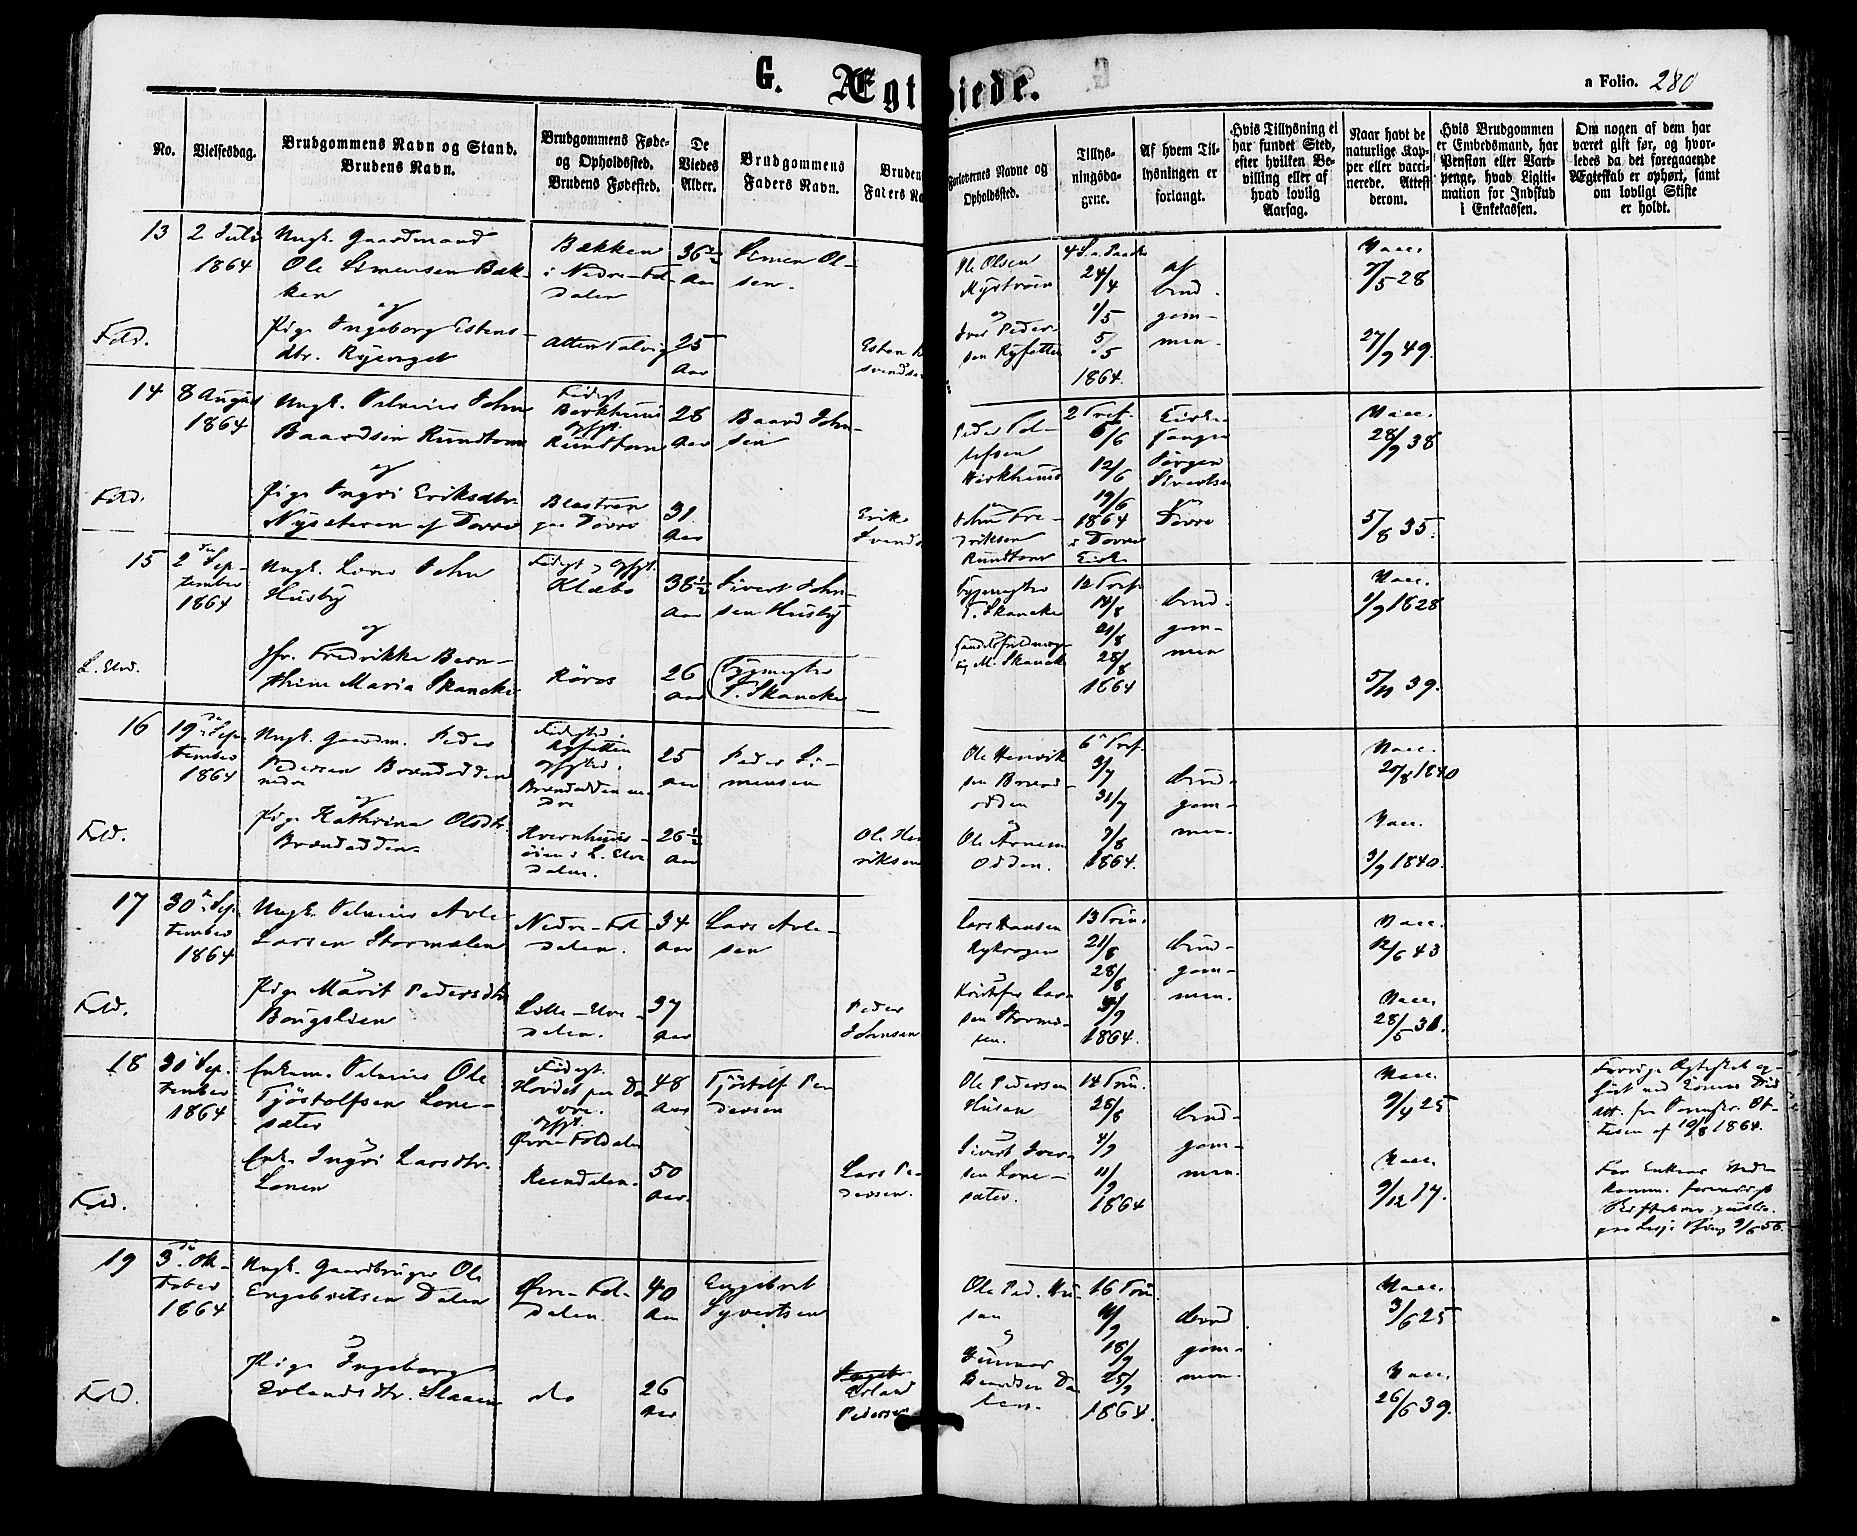 G. Ægteviede.
a Folio. 280
No.
Vielsesdag.
Brudgommens Navn og Stand.
Brudens Navn.
Brudgommens Føde-
og Opholdssted.
Brudens Fødested.
De
Viedes
Alder.
Brudgommens
Faders Navn.
Bruden
Faders Na
Forlovernes Navne og
Opholdssted.
Tillys-
ningsda-
gene.
Af hvem Til-
lysningen er
forlangt.
Hvis Tillysning ei
har fundet Sted,
efter hvilken Be-
villing eller af
hvad lovlig
Aarsag.
Naar havt de
naturlige Kop-
per eller vacci-
nerede. Attest
derom.
Hvis Brudgommen
er Embedsmand, har
Pension eller Vart-
penge, hvad Ligiti-
mation for Indskud
i Enkekassen.
Om nogen af dem har
været gift før, og hvor-
ledes da det foregaaende
Ægteskab er ophørt, samt
om lovligt Skifte
er holdt.
13
2 Juli
1864
Ungk. Gaardmand
Ole Simensen Bæk-
ken
og
Pige Ingeborg Estens-
dtr. Ryeenget
Fold.
Bækken
i Nedre-Fol-
dalen
Alten Talvig
36½
Aar
25
Aar
Simen Ol-
sen.
Esten
svendsen
Ole Olsen
Mystuen
Iver Peder-
sen
24/4
1/5
5/5
1864.
af
brud-
gom-
men.
Vacc.
7/5 28
27/9 49.
14
8 August
1864
Ungk. Selveier John
Baardsen Rundtom
og
Pige Ingri Eriksdtr.
Nysæteren af Dovre
Fold.
Fødested
Borkhuus
Rundtom
paa Dovre
28
Aar
31
Aar
Baard John-
sen
Erik
Svends
Peder Tol-
lefsen
John Fre-
driksen
Rundtom
2 Tref.
5/6
12/6
19/6
1864
i Dovre
Kirke
Kirke-
sanger
Jørgen
Sivertsen
Dovre
Vacc.
28/9 38
5/8 35.
15
2 Sep-
tember
1864
Ungk. John
Husby
og
Jfr. Fredrikke Bern-
thine Maria Skancke
L. Elvd.
Klæbo
Røros
38½
Aar
26
Aar
Sivert John-
sen Husby
T. Skancke
T. Skancke
M. Skancke
12 Tref.
14/8
21/8
28/8
1864
brud-
gom-
men
Vacc.
1/9 1828
5/11 39.
16
19 Sep-
tember
1864
Ungk. Gaardm. Peder
Pedersen Brændodden
nedre
og
Pige Kathrina Olsdtr.
Brændodden.
Fold.
Brændodden ne-
dre
Kvernhuus-
øien i L. Elv-
dalen.
25
Aar
26½
Aar
Peder Si-
mensen
Ole Hen
riksen
Ole Henrik-
sen Brænd-
odden
Ole Arnesen
Odden.
6 Tref.
3/7
31/7
7/8
1864.
brud-
gom-
men.
Vacc.
20/8 1840
Vacc.
3/9 1840.
17
30 Sep-
tember
1864
Ungk. Selveier Avle
Larsen Stormoelen
Pige Marit Pedersdtr.
Borgslien
Fold.
Nedre-Fol-
dalen.
Lille-Elve-
dalen.
34
Aar
37
Aar
Lars Avle-
sen
Peder
Johnsen
Lars Hansen
Rykrogen
Kristofer Lar-
sen Stormo-
en.
13 Trin.
21/8
28/8
4/9
1864.
brud-
gom-
men.
Vacc.
12/6 43
Vacc.
28/5 31.
18
30 Sep-
tember
1864
Enkem. Selveier Ole
Tjøstolfsen Lone-
sæter
Enke Ingri Larsdtr.
Lonen
Fold.
Fødegt.
Hovdet paa Do-
vre.
Øvre-Foldalen
Reendalen.
48
Aar
50
Aar.
Tjøstolf Pe-
dersen
Lars Pe
dersen.
Ole Pedersen
Husan
Sivert Iver-
sen Lone-
sæter.
14 Trin.
28/8
4/9
11/9
1864
brud-
gom-
men.
Vacc.
9/4 25
Vacc.
9/12 17.
Forrige Ægteskab op-
hørt ved Konens Død
Att. fra
af 19/8 1864.
For Enken
19
3 Ok-
tober
1864
Ungk. Gaardbruger Ole
Engebretsen Dalen
Pige Ingeborg
Erlandsdtr. Slaaen
Fold.
Øvre-Fol-
dalen.
do
40
Aar
26
Aar
Engebret
Syvertsen
Erland
Pedersen
Ole Ped. Hu-
san
Gunnar
Baardsen Da-
len.
16 Trin.
11/9
18/9
25/9
1864.
brud
gom-
men.
Vacc.
3/6 25
Vacc.
26/6 39.